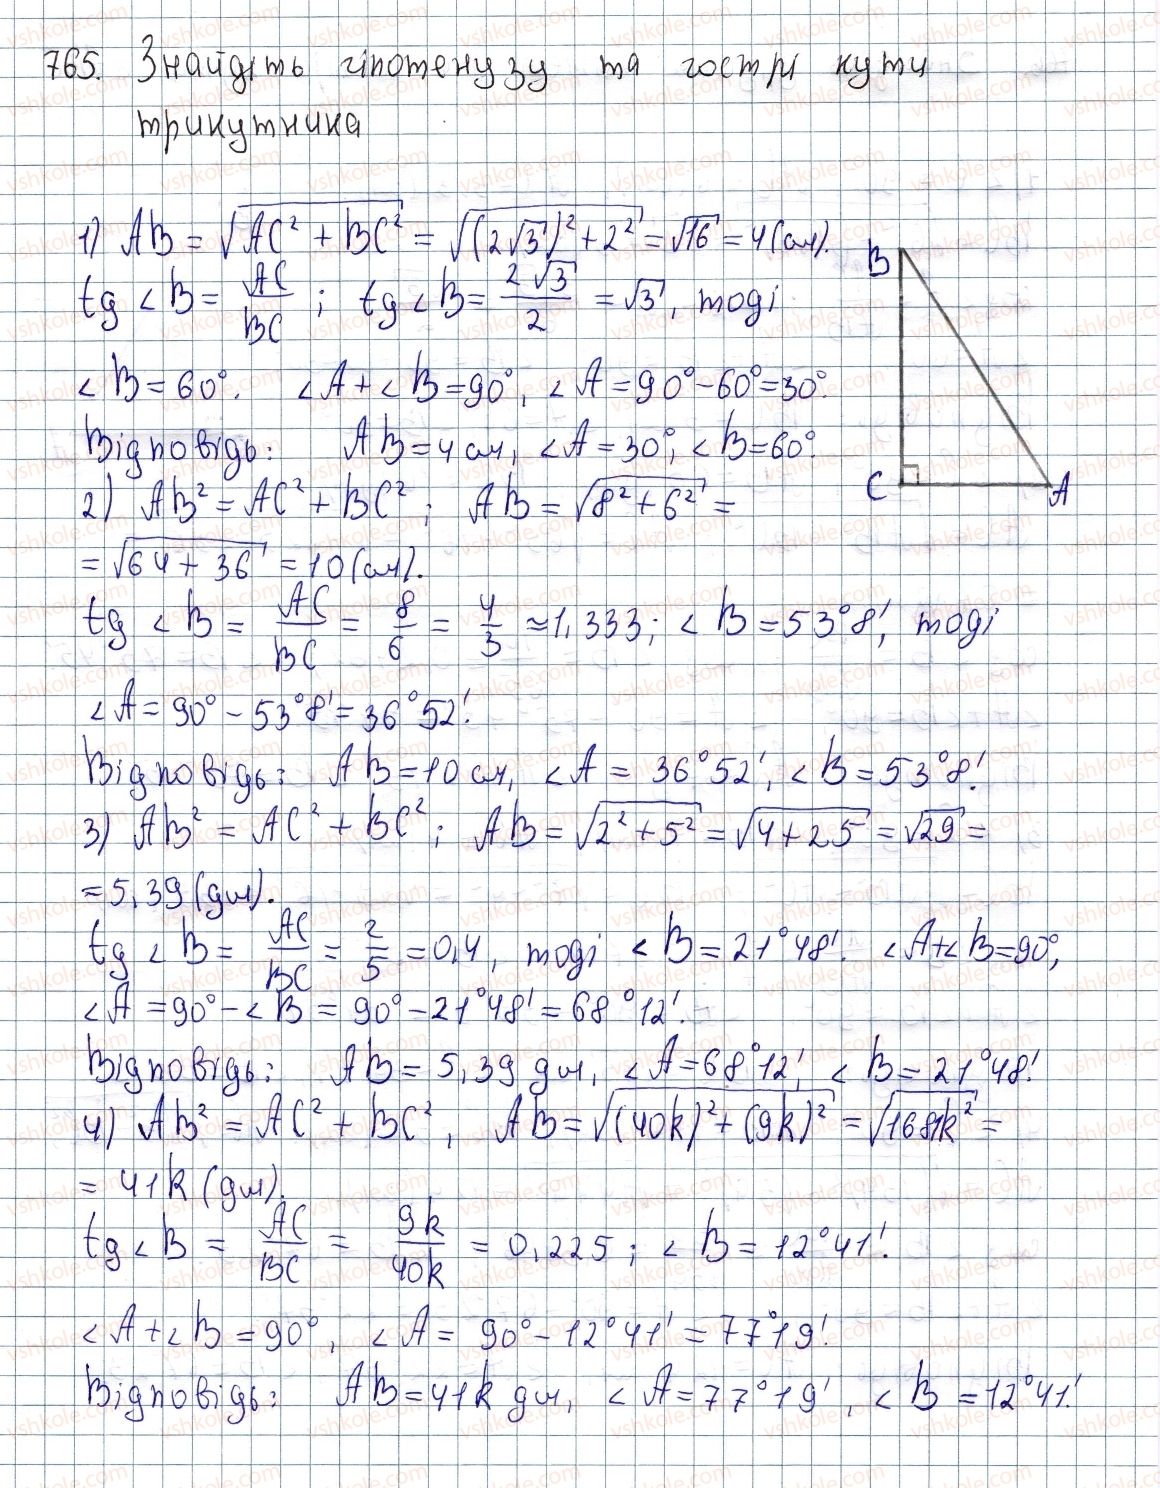 765. Знайдіть гіпотенузу та гострі кути
трикутника
1) AB = √(AC² + BC²) = √((2√3)² + 2²) = √16 = 4 (см).
tg ∠B = AC/BC ; tg ∠B = 2√3/2 = √3, тоді
∠B = 60°. ∠A + ∠B = 90°, ∠A = 90° − 60° = 30°.
Відповідь: AB = 4 см, ∠A = 30°, ∠B = 60°.
2) AB² = AC² + BC² ; AB = √(8² + 6²) =
= √(64 + 36) = 10 (см).
tg ∠B = AC/BC = 8/6 = 4/3 ≈ 1,333; ∠B = 53°8′, тоді
∠A = 90° − 53°8′ = 36°52′.
Відповідь: AB = 10 см, ∠A = 36°52′, ∠B = 53°8′.
3) AB² = AC² + BC² ; AB = √(2² + 5²) = √(4 + 25) = √29 =
= 5,39 (дм).
tg ∠B = AC/BC = 2/5 = 0,4, тоді ∠B = 21°48′. ∠A + ∠B = 90°,
∠A = 90° − ∠B = 90° − 21°48′ = 68°12′.
Відповідь: AB = 5,39 дм, ∠A = 68°12′, ∠B = 21°48′.
4) AB² = AC² + BC² , AB = √((40k)² + (9k)²) = √(1681k²) =
= 41k (дм).
tg ∠B = AC/BC = 9k/40k = 0,225 ; ∠B = 12°41′.
∠A + ∠B = 90°, ∠A = 90° − 12°41′ = 77°19′.
Відповідь: AB = 41k дм, ∠A = 77°19′, ∠B = 12°41′.
B
C
A
vshkole.com